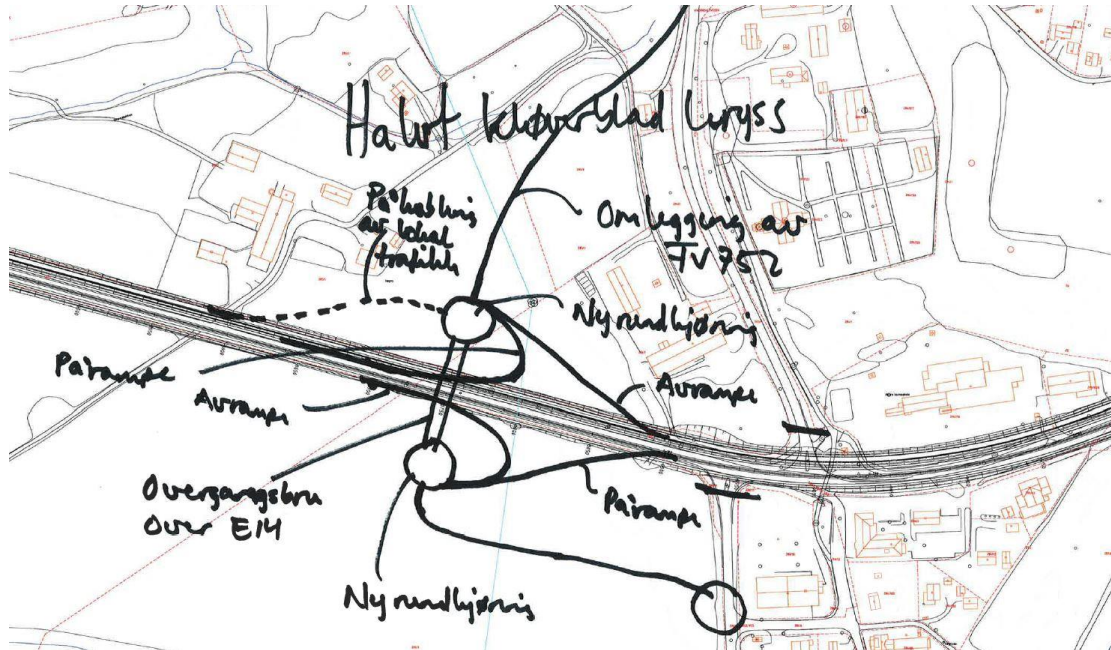 Halvt kløverblad kryss
Påkobling
av lokal
trafikk
Omlegging av
FV 752
Ny rundkjøring
Pårampe
Avrampe
Avrampe
Overgangsbru
over E14
Pårampe
Ny rundkjøring